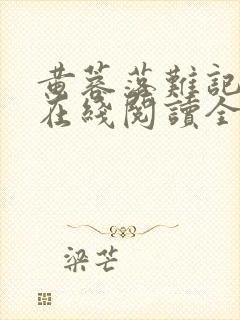 黄蓉落難記
在綫閱讀全
梁芒